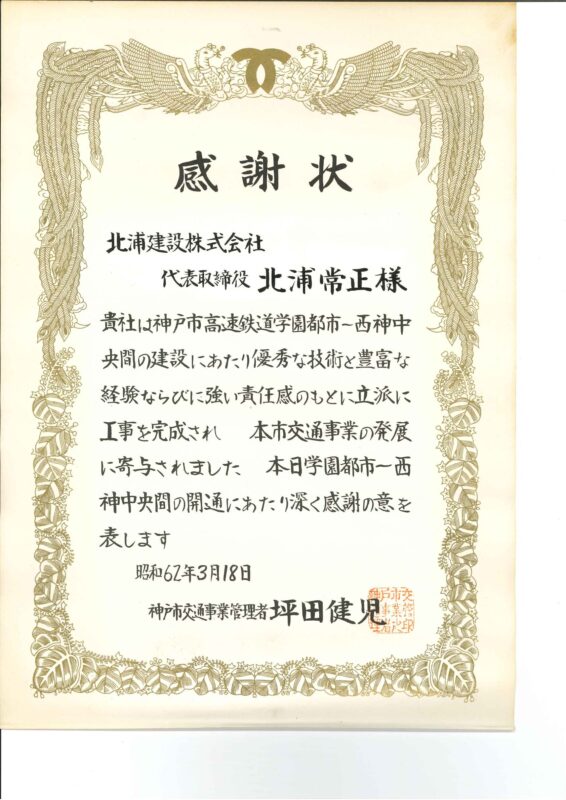 感謝状
北浦建設株式会社
代表取締役 北浦常正様
貴社は神戸市高速鉄道学園都市〜西神中
央間の建設にあたり優秀な技術と豊富な
経験ならびに強い責任感のもとに立派に
工事を完成され　本市交通事業の発展
に寄与されました　本日学園都市〜西
神中央間の開通にあたり深く感謝の意を
表します
昭和62年3月18日
神戸市交通事業管理者 坪田健児